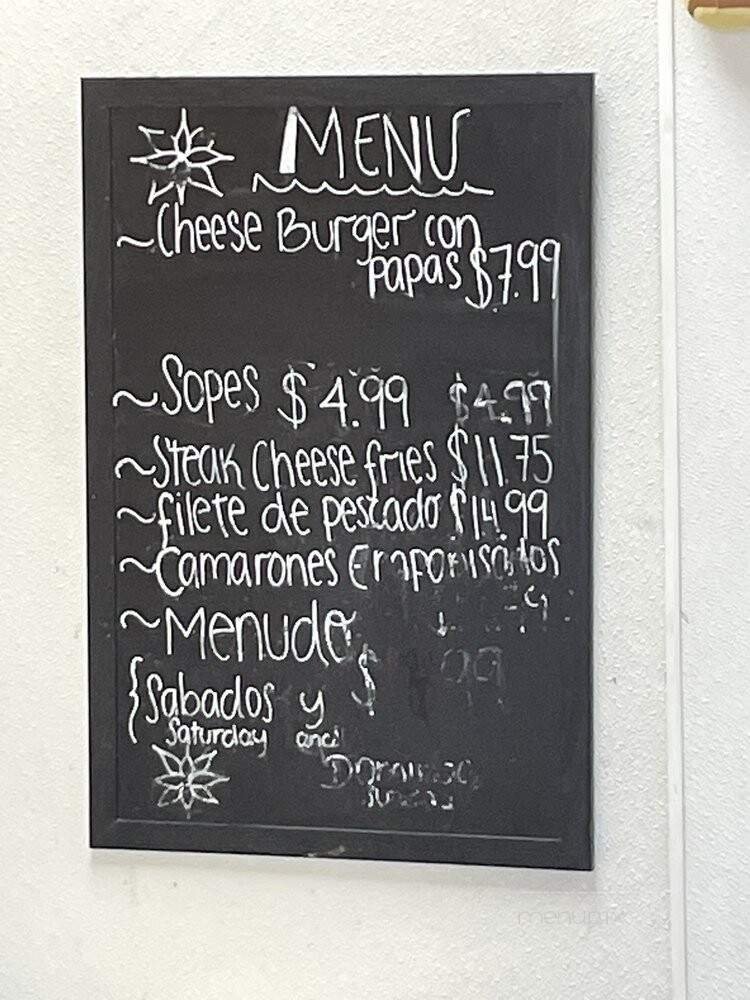 MENU
~Cheese Burger con
papas $7.99
~Sopes $4.99 $4.99
~Steak Cheese fries $11.75
~filete de pescado $14.99
~Camarones
~Menudo
$ 99
{Sabados y
Saturday and
Domingo
Sunday